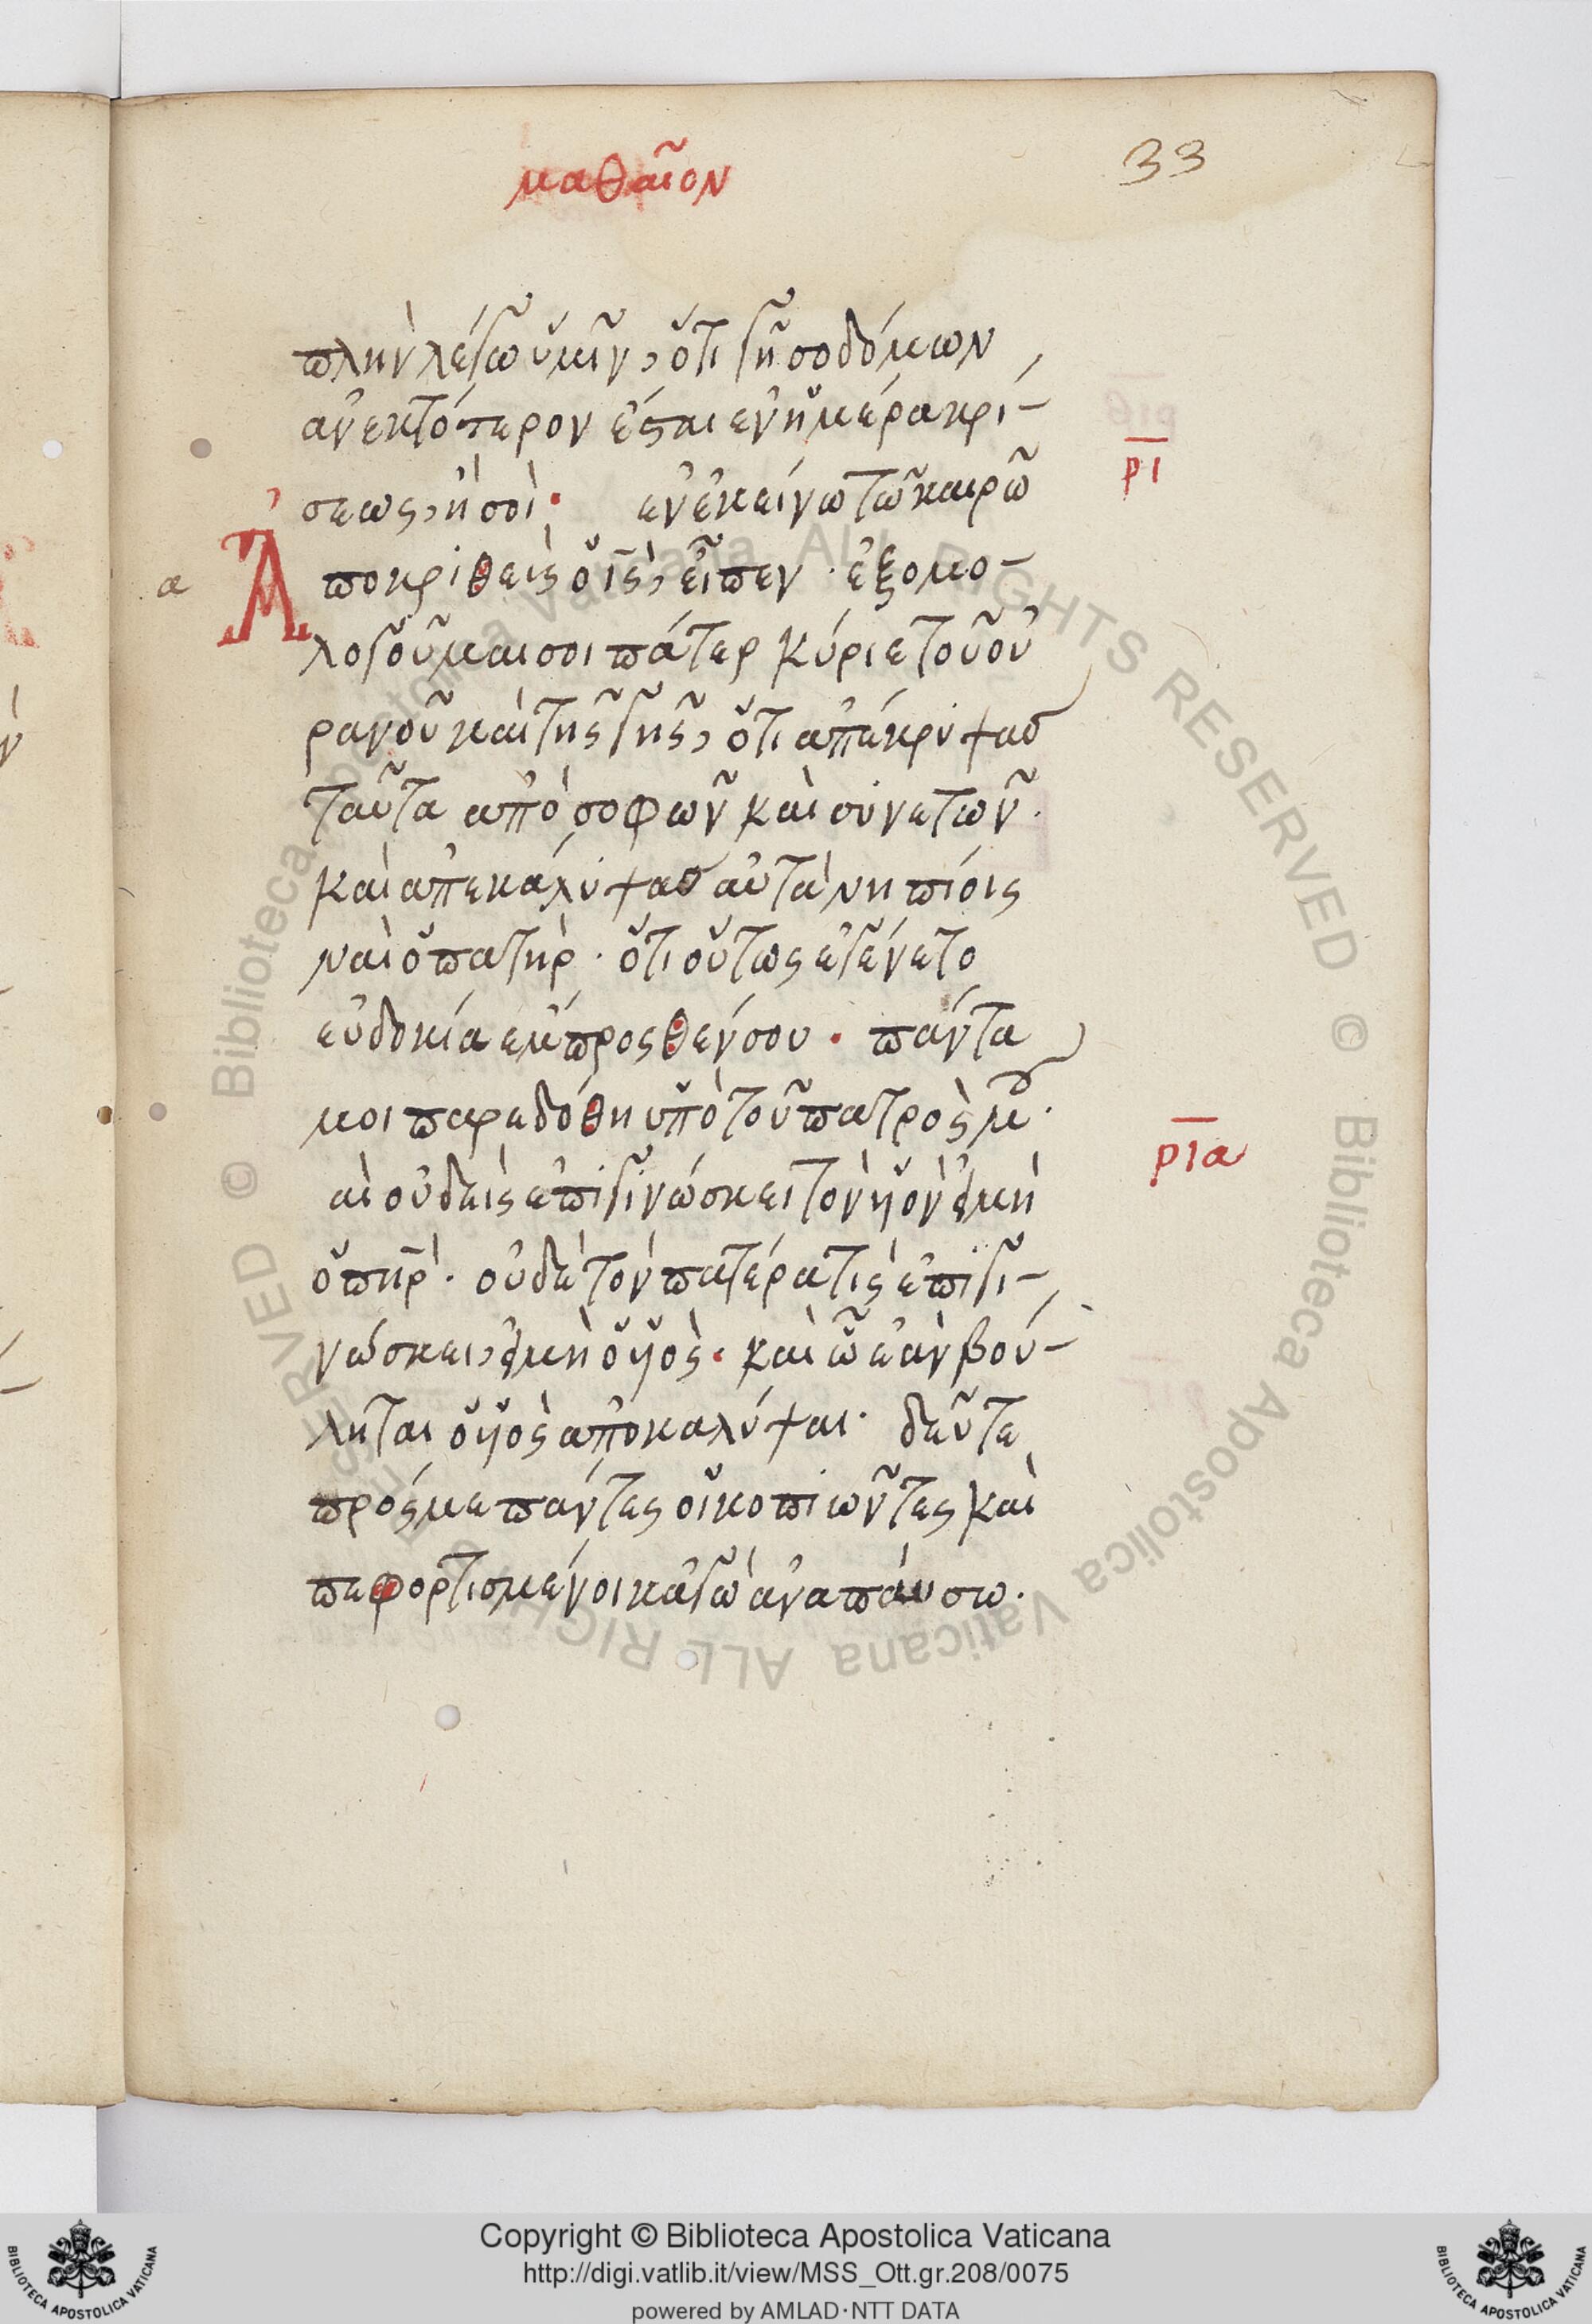 μαθαῖον
33
πλὴν λέγω ὑμῖν, ὅτι γῆ σοδόμων
ἀνεκτότερον ἔσται ἐν ἡμέρα κρί-
σεως, ἢ σοί· ἐν ἐκείνω τῶ καιρῶ
ρι
α Ἀποκριθεὶς ὁ ις, εἶπεν· ἐξομο-
λογοῦμαι σοι πάτερ κύριε τοῦ οὐ
ρανοῦ καὶ τῆς γῆς, ὅτι ἀπέκρυψας
ταῦτα ἀπὸ σοφῶν καὶ συνετῶν·
καὶ ἀπεκάλυψας αὐτὰ νηπίοις
ναὶ ὁ πατὴρ· ὅτι οὕτως ἐγένετο
εὐδοκία ἔμπροσθέν σου· πάντα
μοι παρεδόθη ὑπὸ τοῦ πατρὸς μου·
ρια
αὶ οὐδεὶς ἐπιγινώσκει τὸν ϋὸν εἰμὴ
ὁ πηρ· οὐδὲ τὸν πατέρα τὶς ἐπιγι-
νώσκει, εἰμὴ ὁ ϋὸς· καὶ ὧ ἐὰν βού-
ληται ὁ ϋὸς ἀποκαλύψαι· δεῦτε
πρός με πάντες οἱ κοπιῶντες καὶ
πεφορτισμένοι κἀγὼ ἀναπάυσω·
Copyright © Biblioteca Apostolica Vaticana
http://digi.vatlib.it/view/MSS_Ott.gr.208/0075
powered by AMLAD·NTT DATA